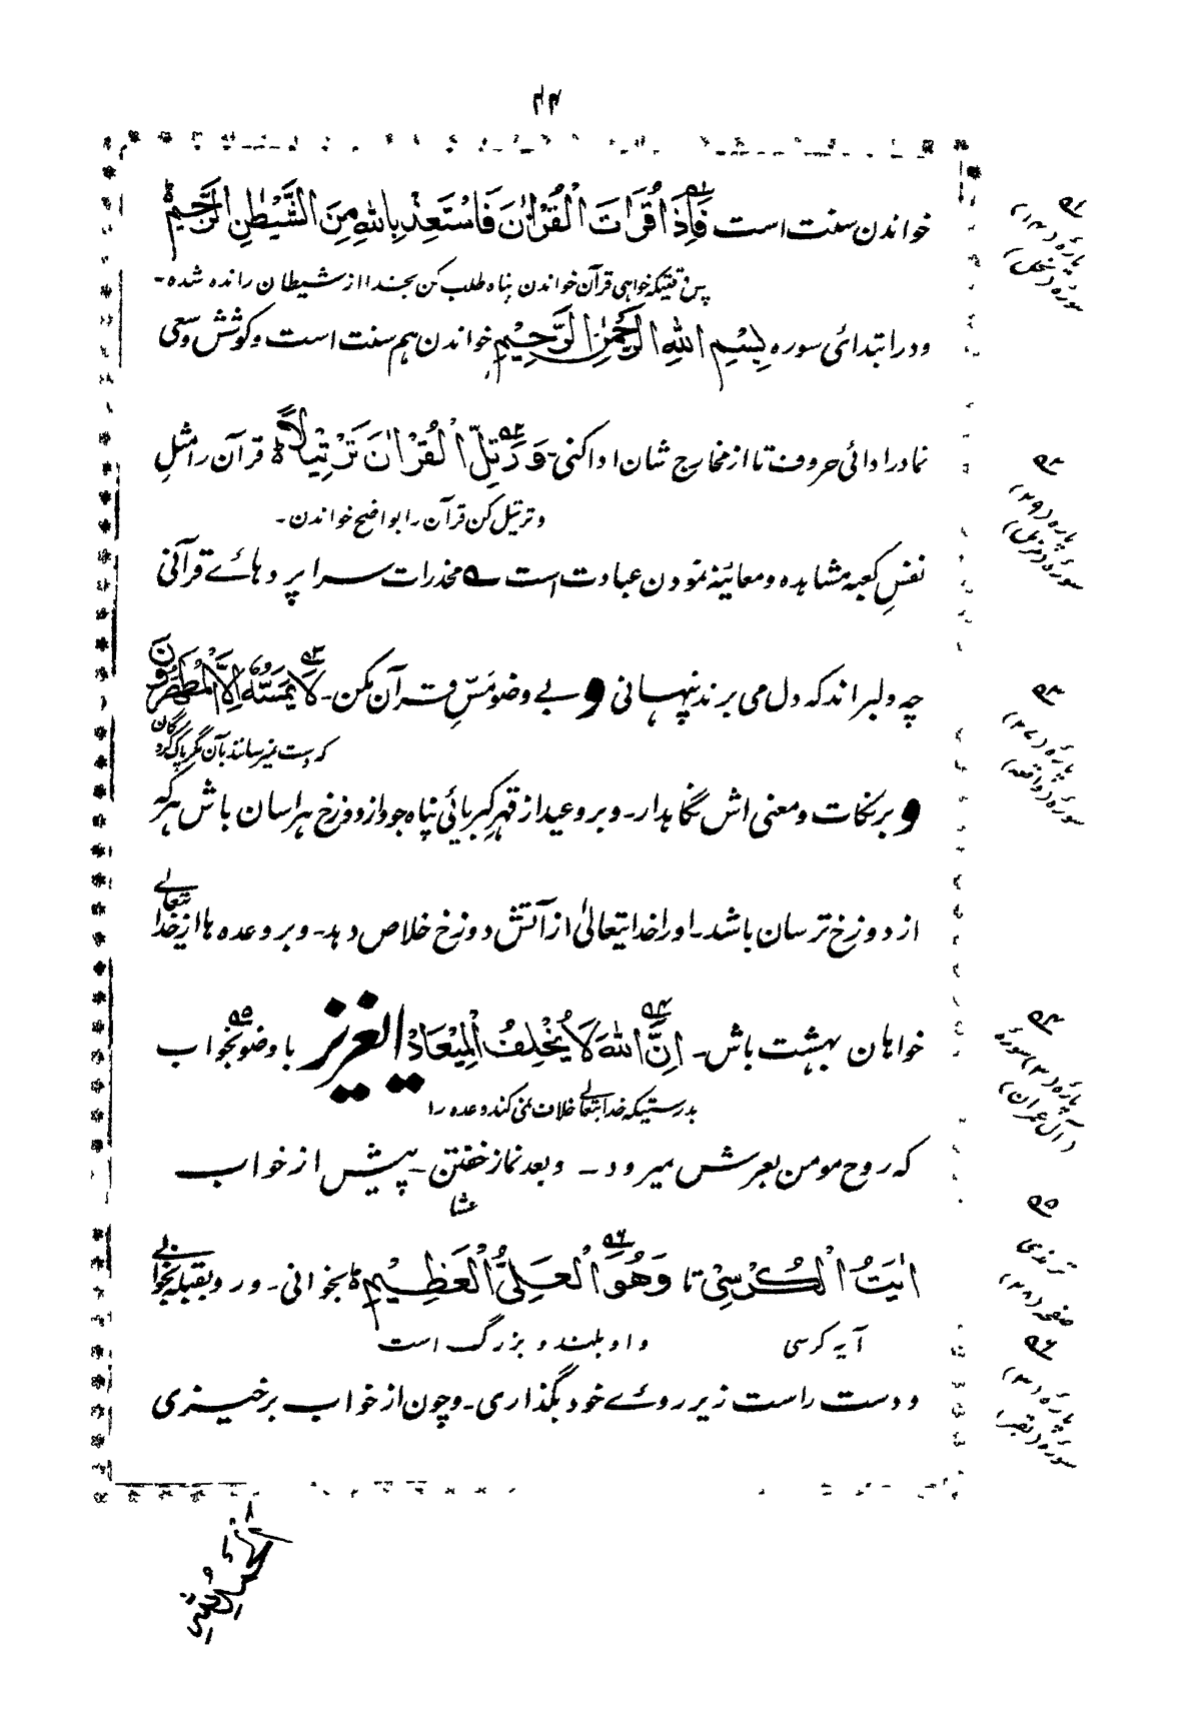 ۴۴
خواندن سنت است فَاِذَا قَرَاْتَ الْقُرْاٰنَ فَاسْتَعِذْ بِاللّٰهِ مِنَ الشَّيْطٰنِ الرَّجِيْمِ ۵۱
پس وقتیکه خواهی قرآن خواندن پناه طلب کن بخدا از شیطان رانده شده۔
و در ابتدائی سوره بِسْمِ اللّٰهِ الرَّحْمٰنِ الرَّحِيْمِ خواندن هم سنت است و کوشش و سعی
نما در ادائی حروف تا از مخارج شان ادا کنی۔ وَرَتِّلِ الْقُرْاٰنَ تَرْتِيْلًا ۵۲ قرآن را مثلِ
و ترتیل کن قرآن را بواضح خواندن۔
نفسِ کعبه مشاهده و معائینه نمودن عبادت است ے مخدرات سرا پردهائے قرآنی
چه دلبر اند که دل می برند پنهانی و بے وضو مَسِّ قرآن مکن۔ لَا يَمَسُّهٗ اِلَّا الْمُطَهَّرُوْنَ ۵۳
که دست نمیرسانند بآن مگر پاک کردگان
و بر نکات و معنی اش نگاهدار۔ و بر وعید از قهرِ کبریائی پناه جو از دوزخ هراسان باش هر که
از دوزخ ترسان باشد۔ او را خدایتعالیٰ از آتش دوزخ خلاص دهد۔ و بر وعده ها از خدا تعالے
خواهان بهشت باش۔ اِنَّ اللّٰهَ لَا يُخْلِفُ الْمِيْعَادَ ۵۴ ایعزیز با وضو بخواب ۵۵
بدرستیکه خدا تعالےٰ خلاف نمی کند وعده را
که روح مومن بعرش میرود۔ و بعد نماز خفتن۔ پیش از خواب
عشا
اٰيَتُ الْكُرْسِيْ تا وَهُوَ الْعَلِيُّ الْعَظِيْمِ ۵۶ بخوانی۔ و رو بقبله بخوابی
آیه کرسی و او بلند و بزرگ است
و دست راست زیر روئے خود بگذاری۔ و چون از خواب برخیزی
۵۱
پارهٔ (۱۴)
سورهٔ (نحل)
۵۲
پارهٔ (۲۹)
سورهٔ (مزمل)
۵۳
پارهٔ (۲۷)
سورهٔ (واقعه)
۵۴
پارهٔ (۳) سورهٔ
(آل عمران)
۵۵
ترمذی
صفحه (۲۸)
۵۶
پارهٔ (۳)
سورهٔ (بقر)